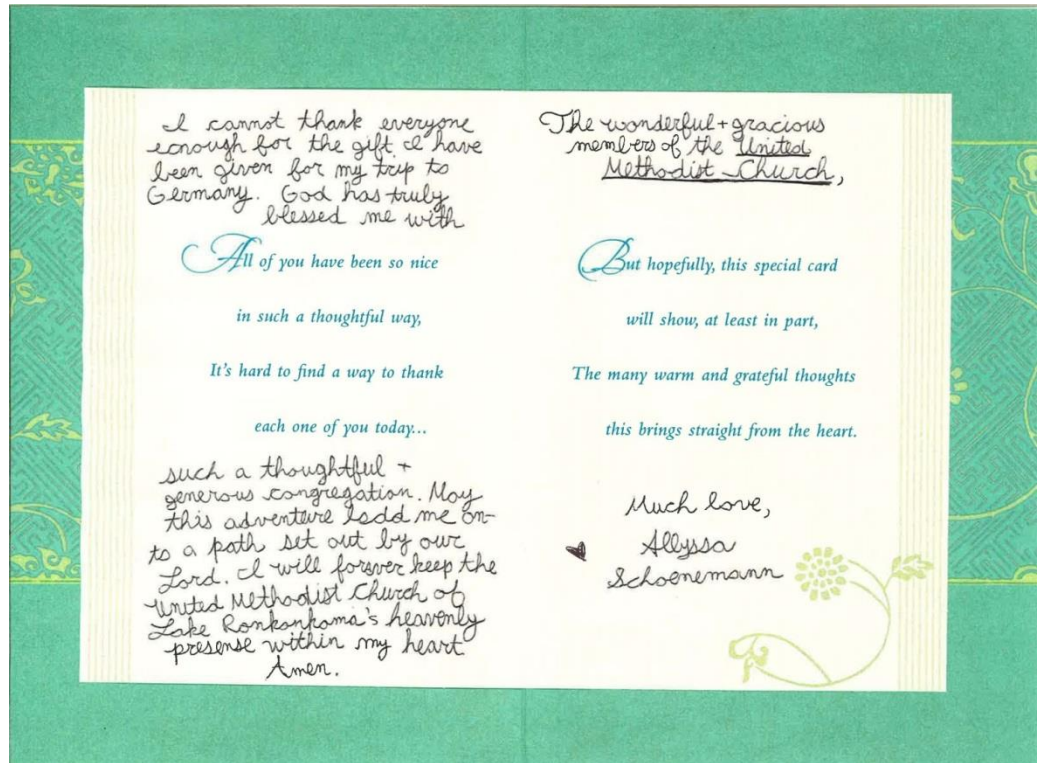 I cannot thank everyone
ecnough for the gift I have
been given for my trip to
Germany. God has truly
blessed me with
All of you have been so nice
in such a thoughtful way,
It's hard to find a way to thank
each one of you today...
such a thoughtful +
generous congregation. May
this adventure ladd me on-
to a path set out by our
Lord. I will forever keep the
United Methodist Church of
Lake Ronkonkoma's heavenly
presense within my heart
Amen.
The wonderful + gracious
members of the United
Methodist Church,
But hopefully, this special card
will show, at least in part,
The many warm and grateful thoughts
this brings straight from the heart.
Much love,
Allyssa
Schoenemann